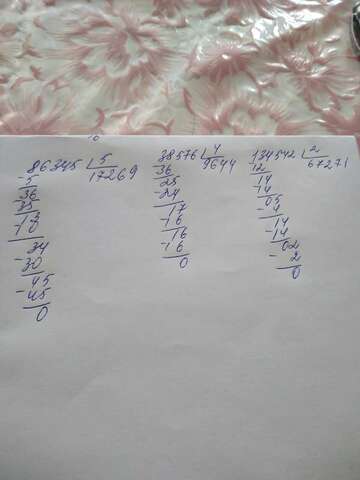 86345 5
- 5 17269
36
35
- 13
10
- 34
30
- 45
45
0
38576 4
36 9644
25
- 24
17
- 16
16
- 16
0
134542 2
12 67271
14
- 14
05
4
14
- 14
02
- 2
0